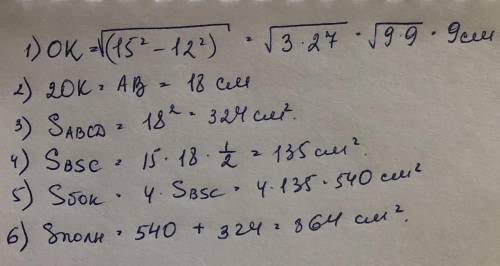 1) OK = √(15² - 12²) = √3·27 = √9·9 = 9 см
2) 2OK = AB = 18 см
3) SABCD = 18² = 324 см².
4) SBSC = 15·18·1/2 = 135 см².
5) Sбок = 4·SBSC = 4·135 = 540 см²
6) Sполн = 540 + 324 = 864 см².